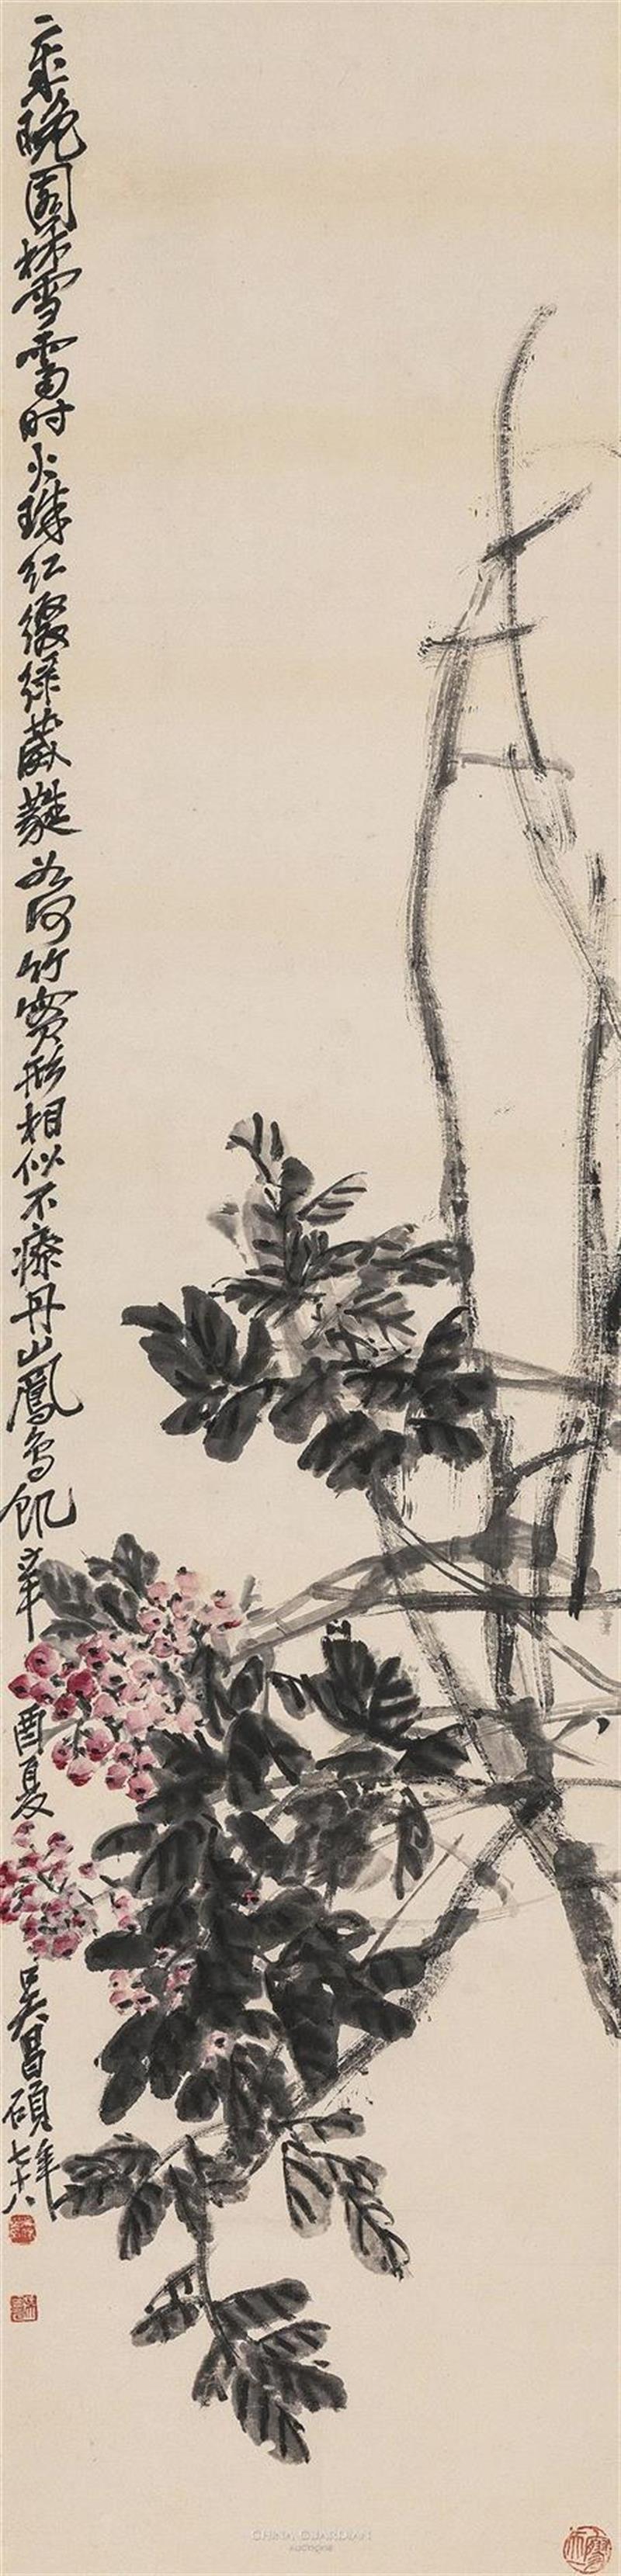 歲晚園林雪霽時火珠紅綴綠葳蕤如何竹實形相似不療丹山鳳鳥飢辛酉夏吳昌碩年七十八
CHINA GUARDIAN
AUCTIONS